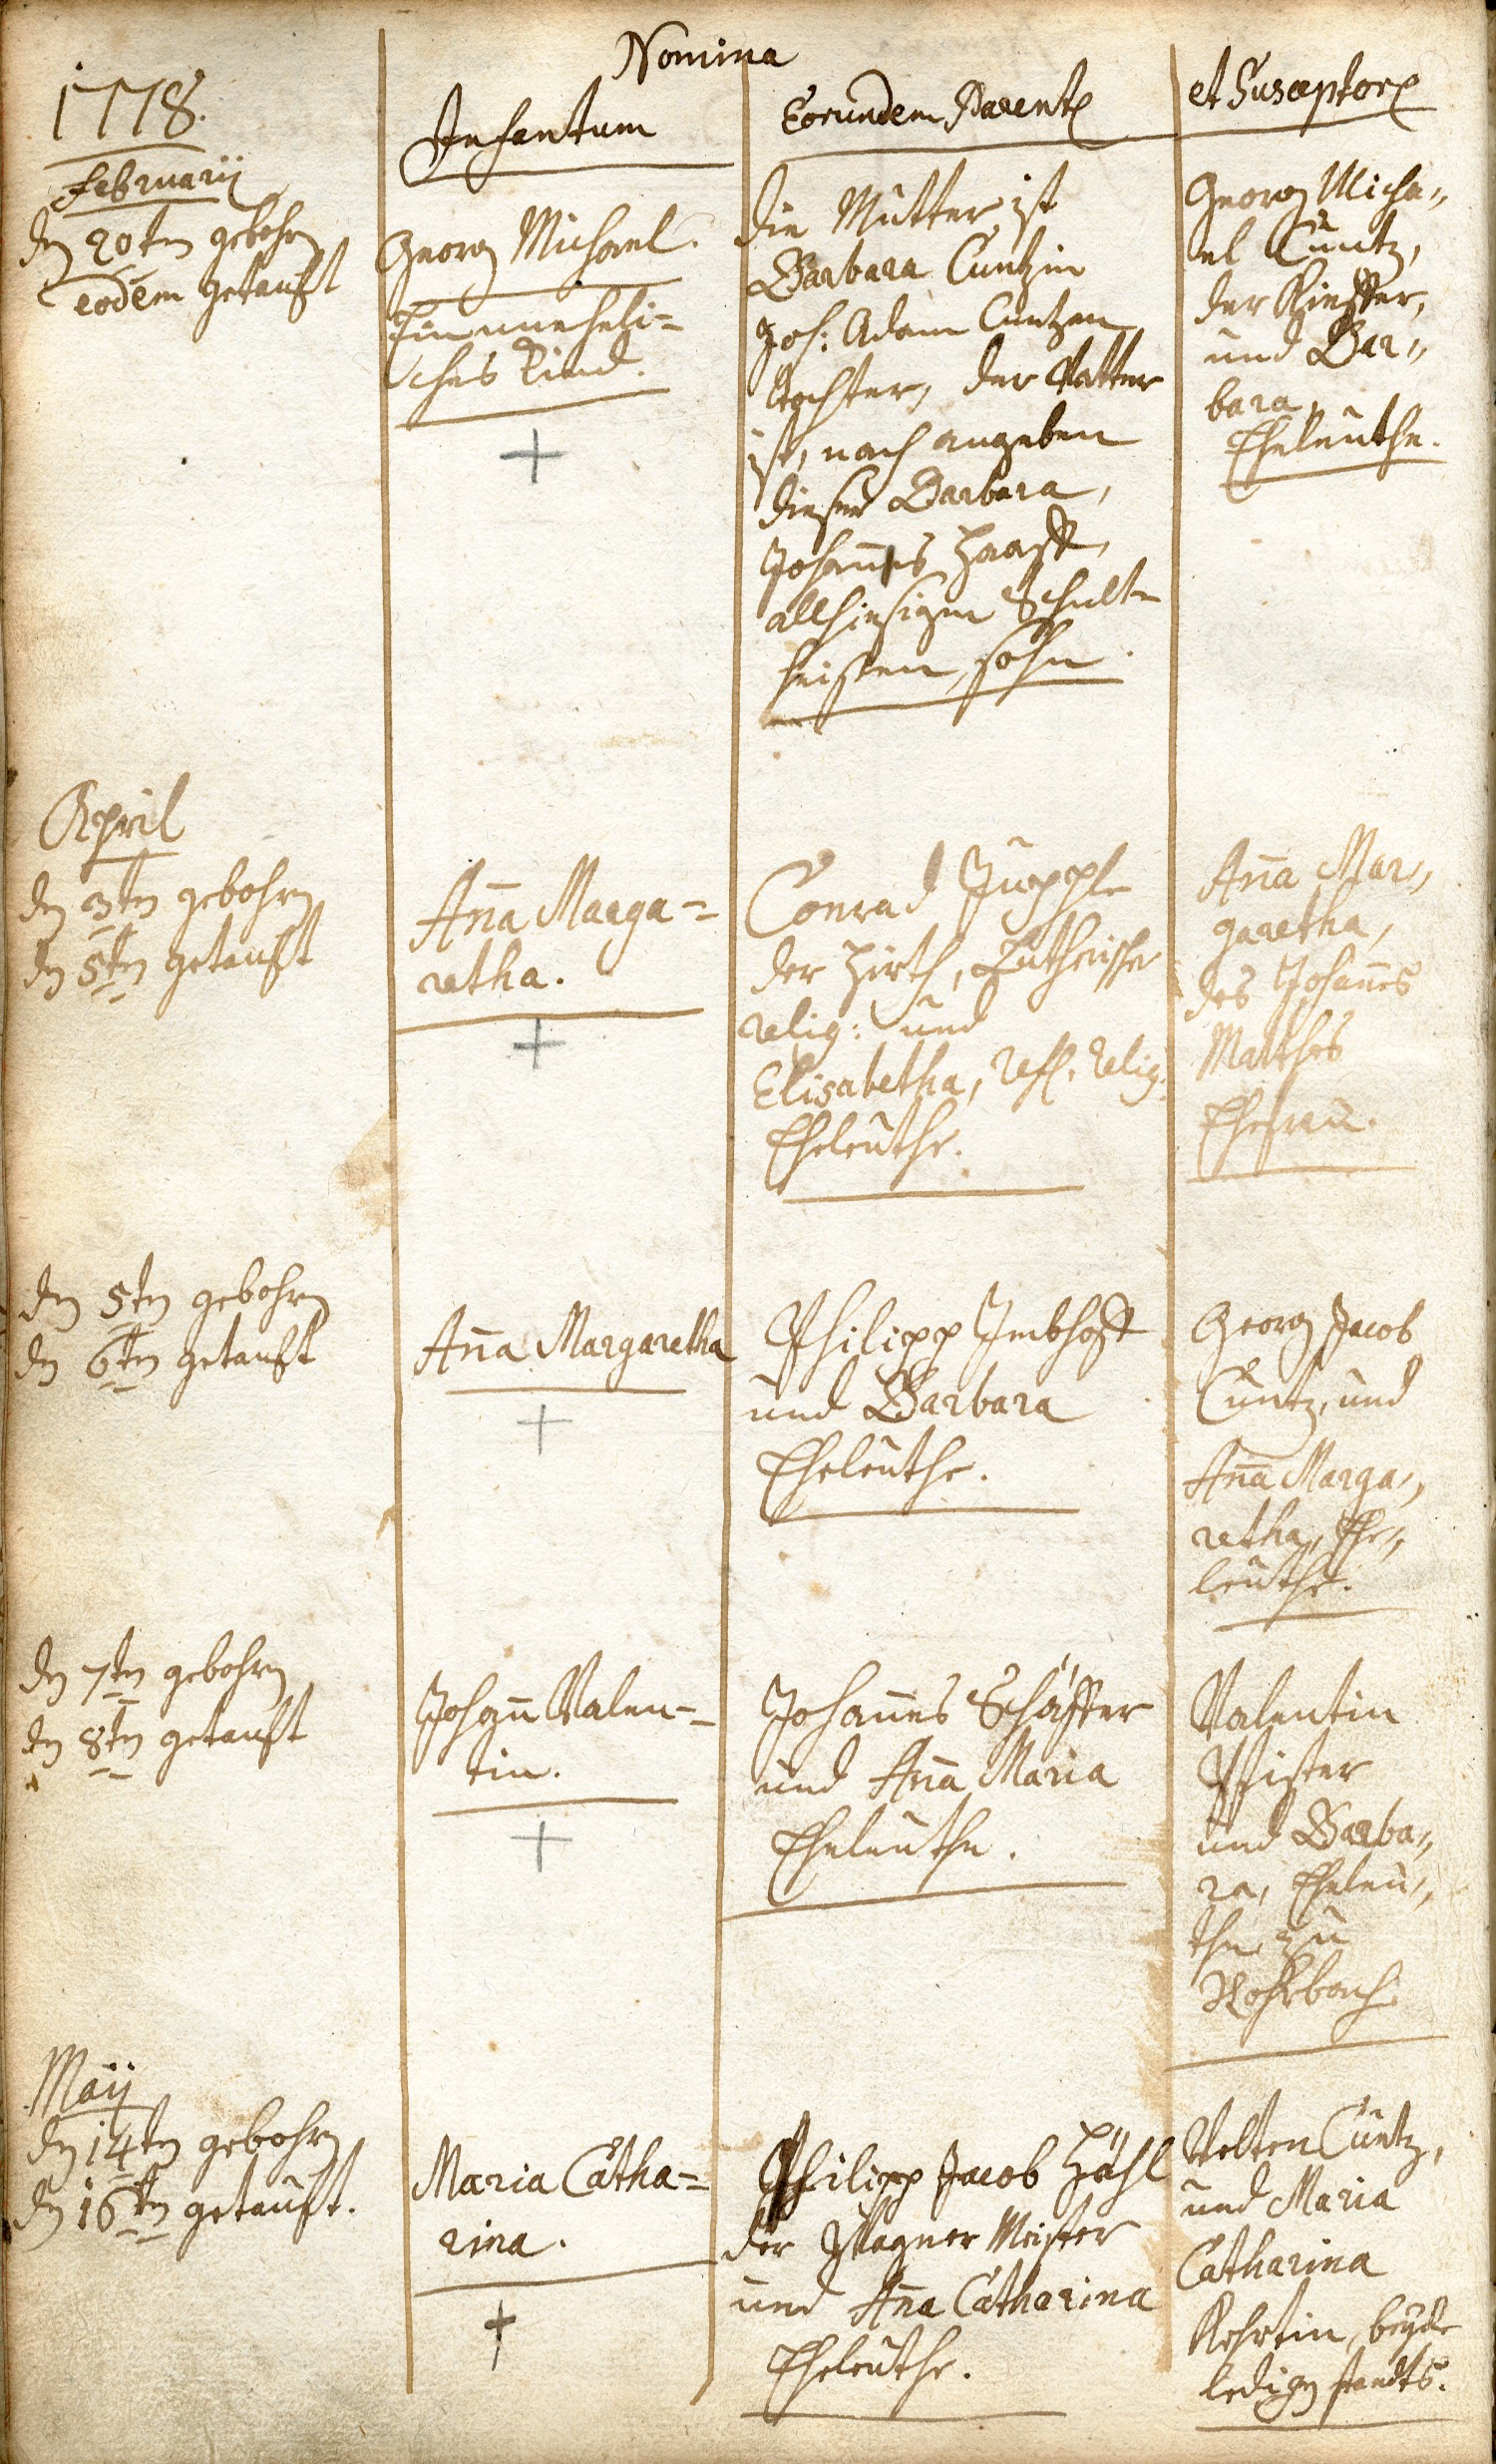 Nomina
1778.
Infantum
Eorundem Parent
et Susceptor
Februarij
den 20ten gebohren
eodem getauft
Georg Michael.
Ein uneheli=
ches Kind.
die Mutter ist
Barbara Cuntzin
Joh: Adam Cuntzen
tochter, der Vatter
ist, nach angeben
dieser Barbara,
Johannes Haaß,
allhiesigen Schult
heißen, sohn.
Georg Micha„
el Cuntz,
der
und Bar„
bara,
Eheleuthe.
April
den 3ten gebohren
den 5ten getauft
Aña Marga=
retha.
Conrad
der Hirth, Lutherische
relig: und
Elisabetha, ref. relig.
Eheleuthe.
Aña Mar„
garetha,
des Johañes
Matthes
Ehefrau.
den 5ten gebohren
den 6ten getauft
Aña Margaretha
Philipp Imbhoff
und Barbara
Eheleuthe.
Georg Jacob
Cuntz, und
Aña Marga„
retha, Ehe„
leuthe.
den 7ten gebohren
den 8ten getauft
Johañ Valen=
tin.
Johañes Schäffer
und Aña Maria
Eheleuthe.
Valentin
Pfister
und Barba„
ra, Eheleu„
the zu
Rohrbach
Maij
den 14ten gebohren
den 16ten getauft.
Maria Catha=
rina.
Philipp Jacob
der Wagner Meister
und Aña Catharina
Eheleuthe.
Velten Cuntz,
und Maria
Catharina
beyde
ledigen standts.